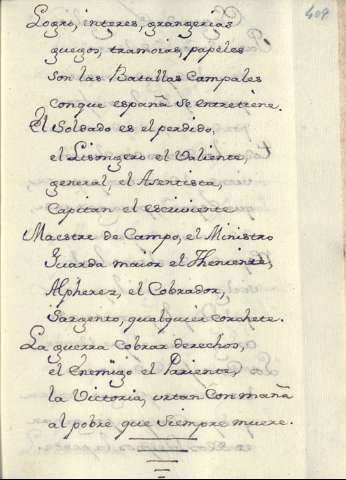 409
Logro, interes, grangerias
guegos, tramoias, papeles
son las Batallas Campales
Conque españa se entretiene.
El Soldado es el perdido,
el Lisongero el Valiente,
general, el Asentista,
Capitan el escriviente
Maestre de Campo, el Ministro
Guarda maior el Theniente,
Alpherez, el Cobrador,
Sargento, qualquier corchete.
La guerra Cobrar derechos,
el Enemigo el Pariente,
la Victoria, urtan Con maña
al pobre que siempre muere.